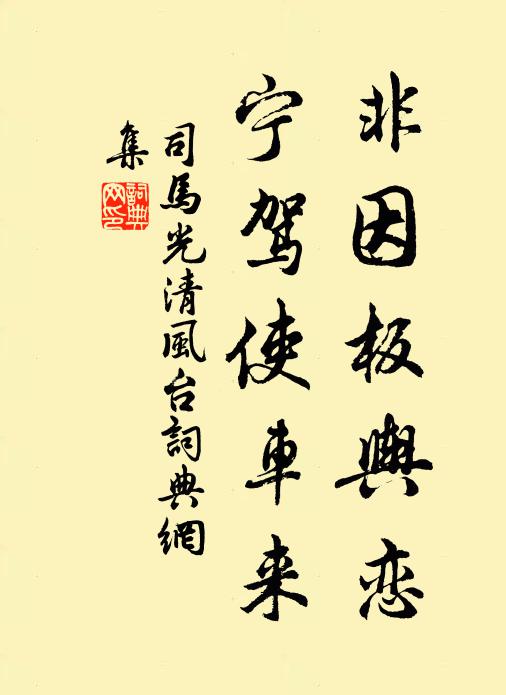 非因板輿恋
宁驾使車来
司馬光清風台詞典網
集
詞典网印